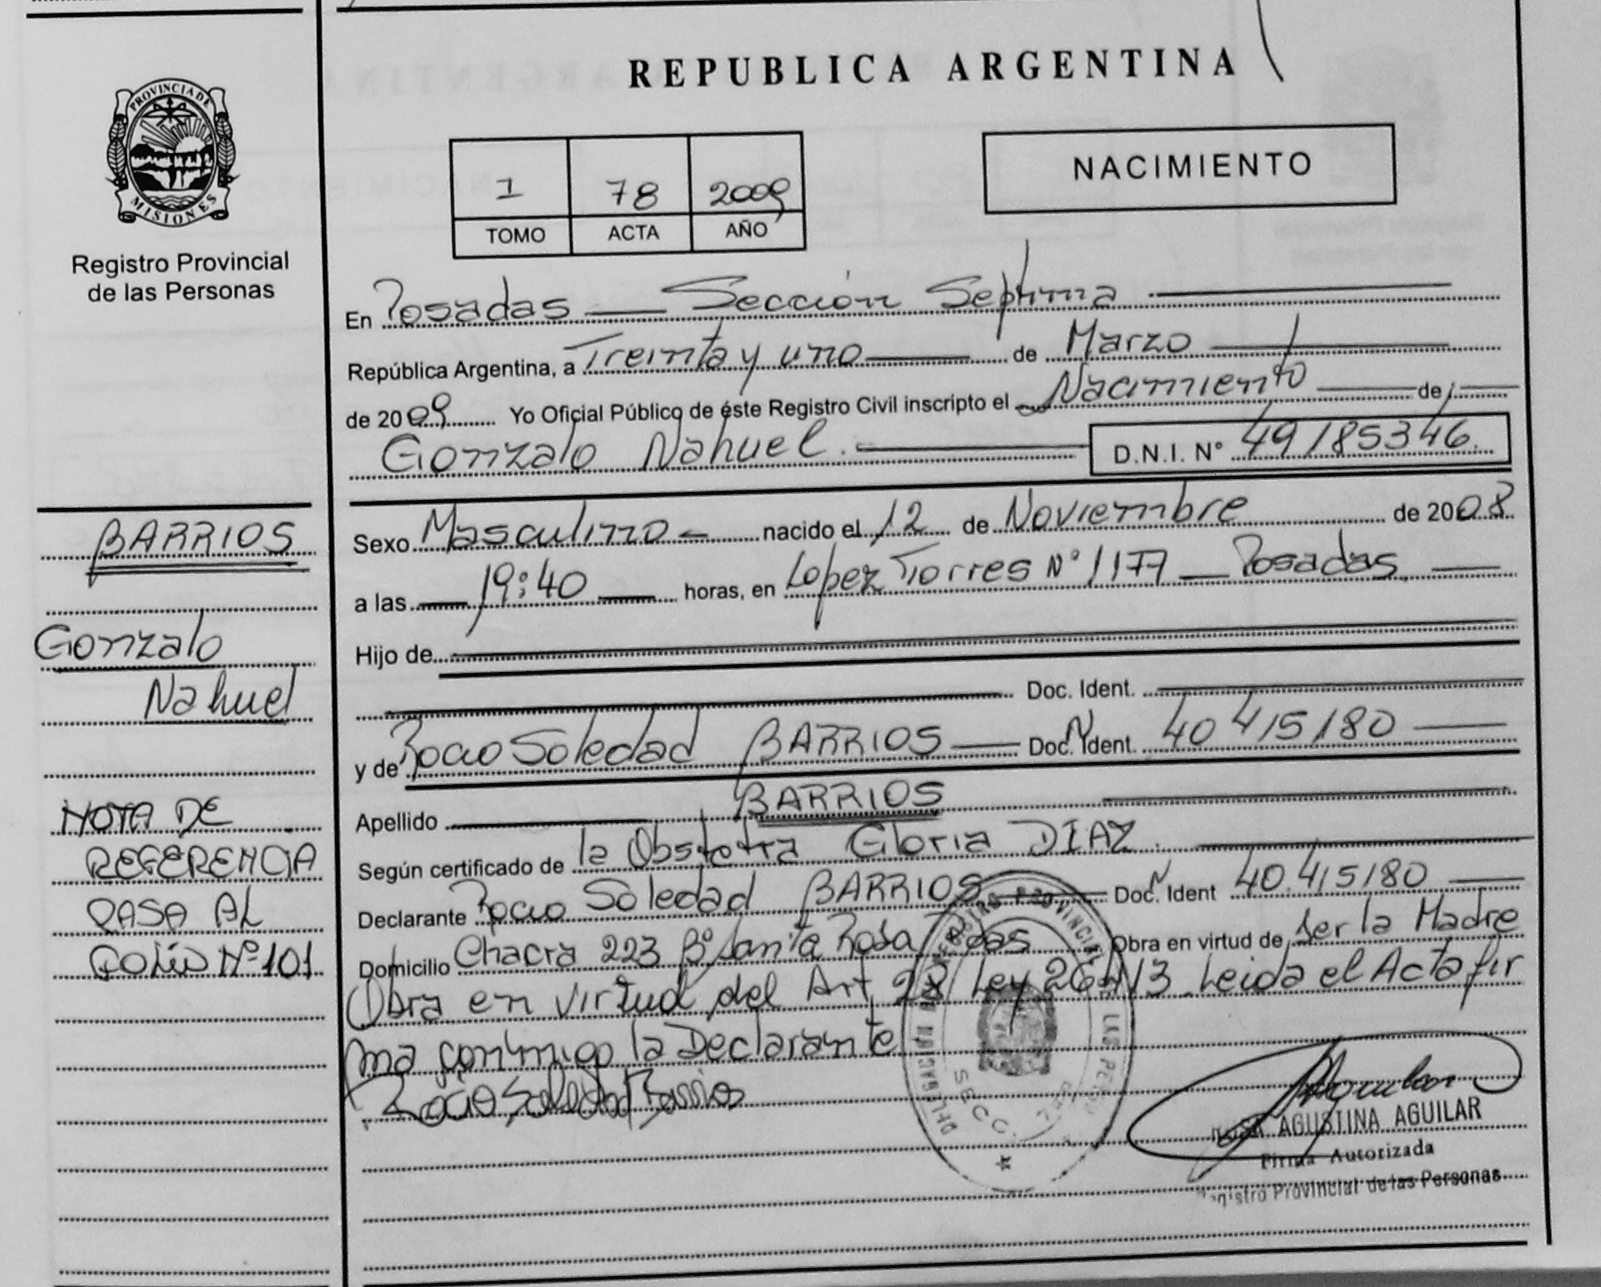 PROVINCIA DE
MISIONES
Registro Provincial
de las Personas
BARRIOS
Gonzalo
Nahuel
NOTA DE
REFERENCIA
PASA AL
FOLIO Nº 101
REPUBLICA ARGENTINA
1 78 2009
TOMO ACTA AÑO
NACIMIENTO
En Posadas — Sección Septima
República Argentina, a Treinta y uno de Marzo
de 2009 Yo Oficial Público de éste Registro Civil inscripto el Nacimiento de
Gonzalo Nahuel. D.N.I. Nº 49185346.
Sexo Masculino nacido el 12 de Noviembre de 2008
a las 19:40 horas, en Lopez Torres Nº 1177 — Posadas
Hijo de
Doc. Ident.
y de Rocio Soledad BARRIOS Doc. N Ident. 40 415180
Apellido BARRIOS
Según certificado de la Obstetra Gloria DIAZ.
Declarante Rocio Soledad BARRIOS Doc. N Ident 40.415180
Domicilio Chacra 223 Bº Santa Rosa Pdas Obra en virtud de ser la Madre
Obra en virtud del Art 28 Ley 26413 Leida el Acta fir
ma conmigo la Declarante
Rocio Soledad Barrios
REGISTRO PROVINCIAL DE LAS PERSONAS
SECC. 7
ROSA AGUSTINA AGUILAR
Firma Autorizada
Registro Provincial de las Personas